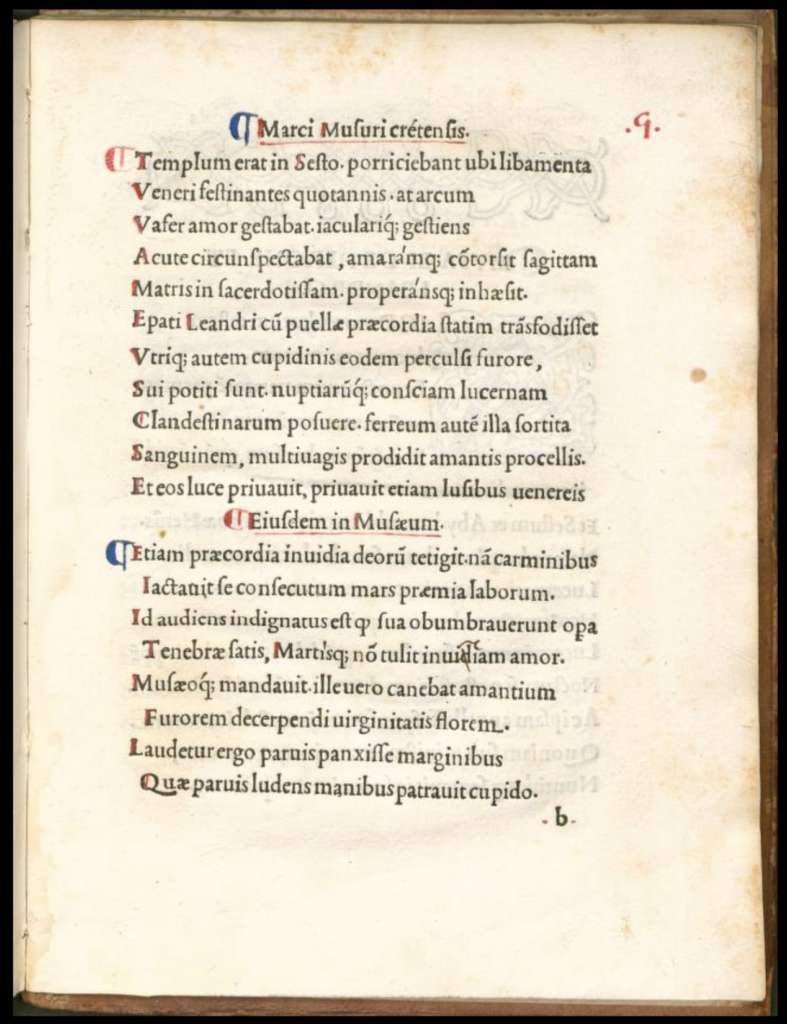 ¶Marci Musuri cré́tensis.
.9.
¶Templum erat in Sesto. porriciebant ubi libamenta
Veneri festinantes quotannis. at arcum
Vafer amor gestabat. iaculariq́; gestiens
Acute circunspectabat, amarámq; cōtorsit sagittam
Matris in sacerdotissam. properánsq; inhæsit.
Epati Leandri cū puellæ præcordia statim trāsfodisset
Vtriq; autem cupidinis eodem perculsi furore,
Sui potiti sunt. nuptiarūq́; consciam lucernam
Clandestinarum posuere. ferreum autē illa sortita
Sanguinem, multiuagis prodidit amantis procellis.
Et eos luce priuauit, priuauit etiam lusibus uenereis
¶Eiusdem in Musæum.
¶Etiam præcordia inuidia deorū tetigit. nā carminibus
Iactauit se consecutum mars præmia laborum.
Id audiens indignatus est ꝙ sua obumbrauerunt opa
Tenebræ satis, Martísq; nō tulit inuidiam amor.
Musæoq́; mandauit. ille uero canebat amantium
Furorem decerpendi uirginitatis florem.
Laudetur ergo paruis panxisse marginibus
Quæ paruis ludens manibus patrauit cupido.
.b.